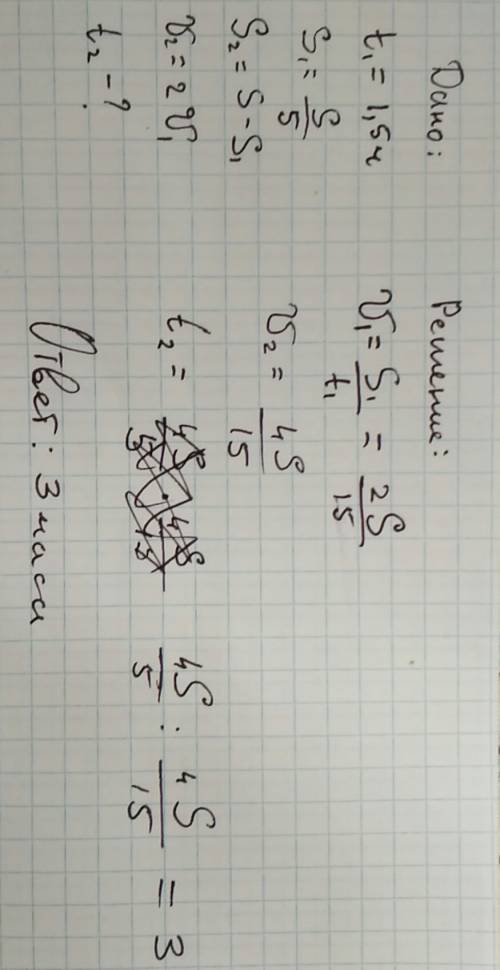 Дано:
t₁ = 1,5ч
S₁ = S/5
S₂ = S - S₁
v₂ = 2 v₁
t₂ - ?
Решение:
v₁ = S₁/t₁ = 2S/15
v₂ = 4S/15
t₂ = 4S/5 : 4S/15 = 3
Ответ: 3 часа